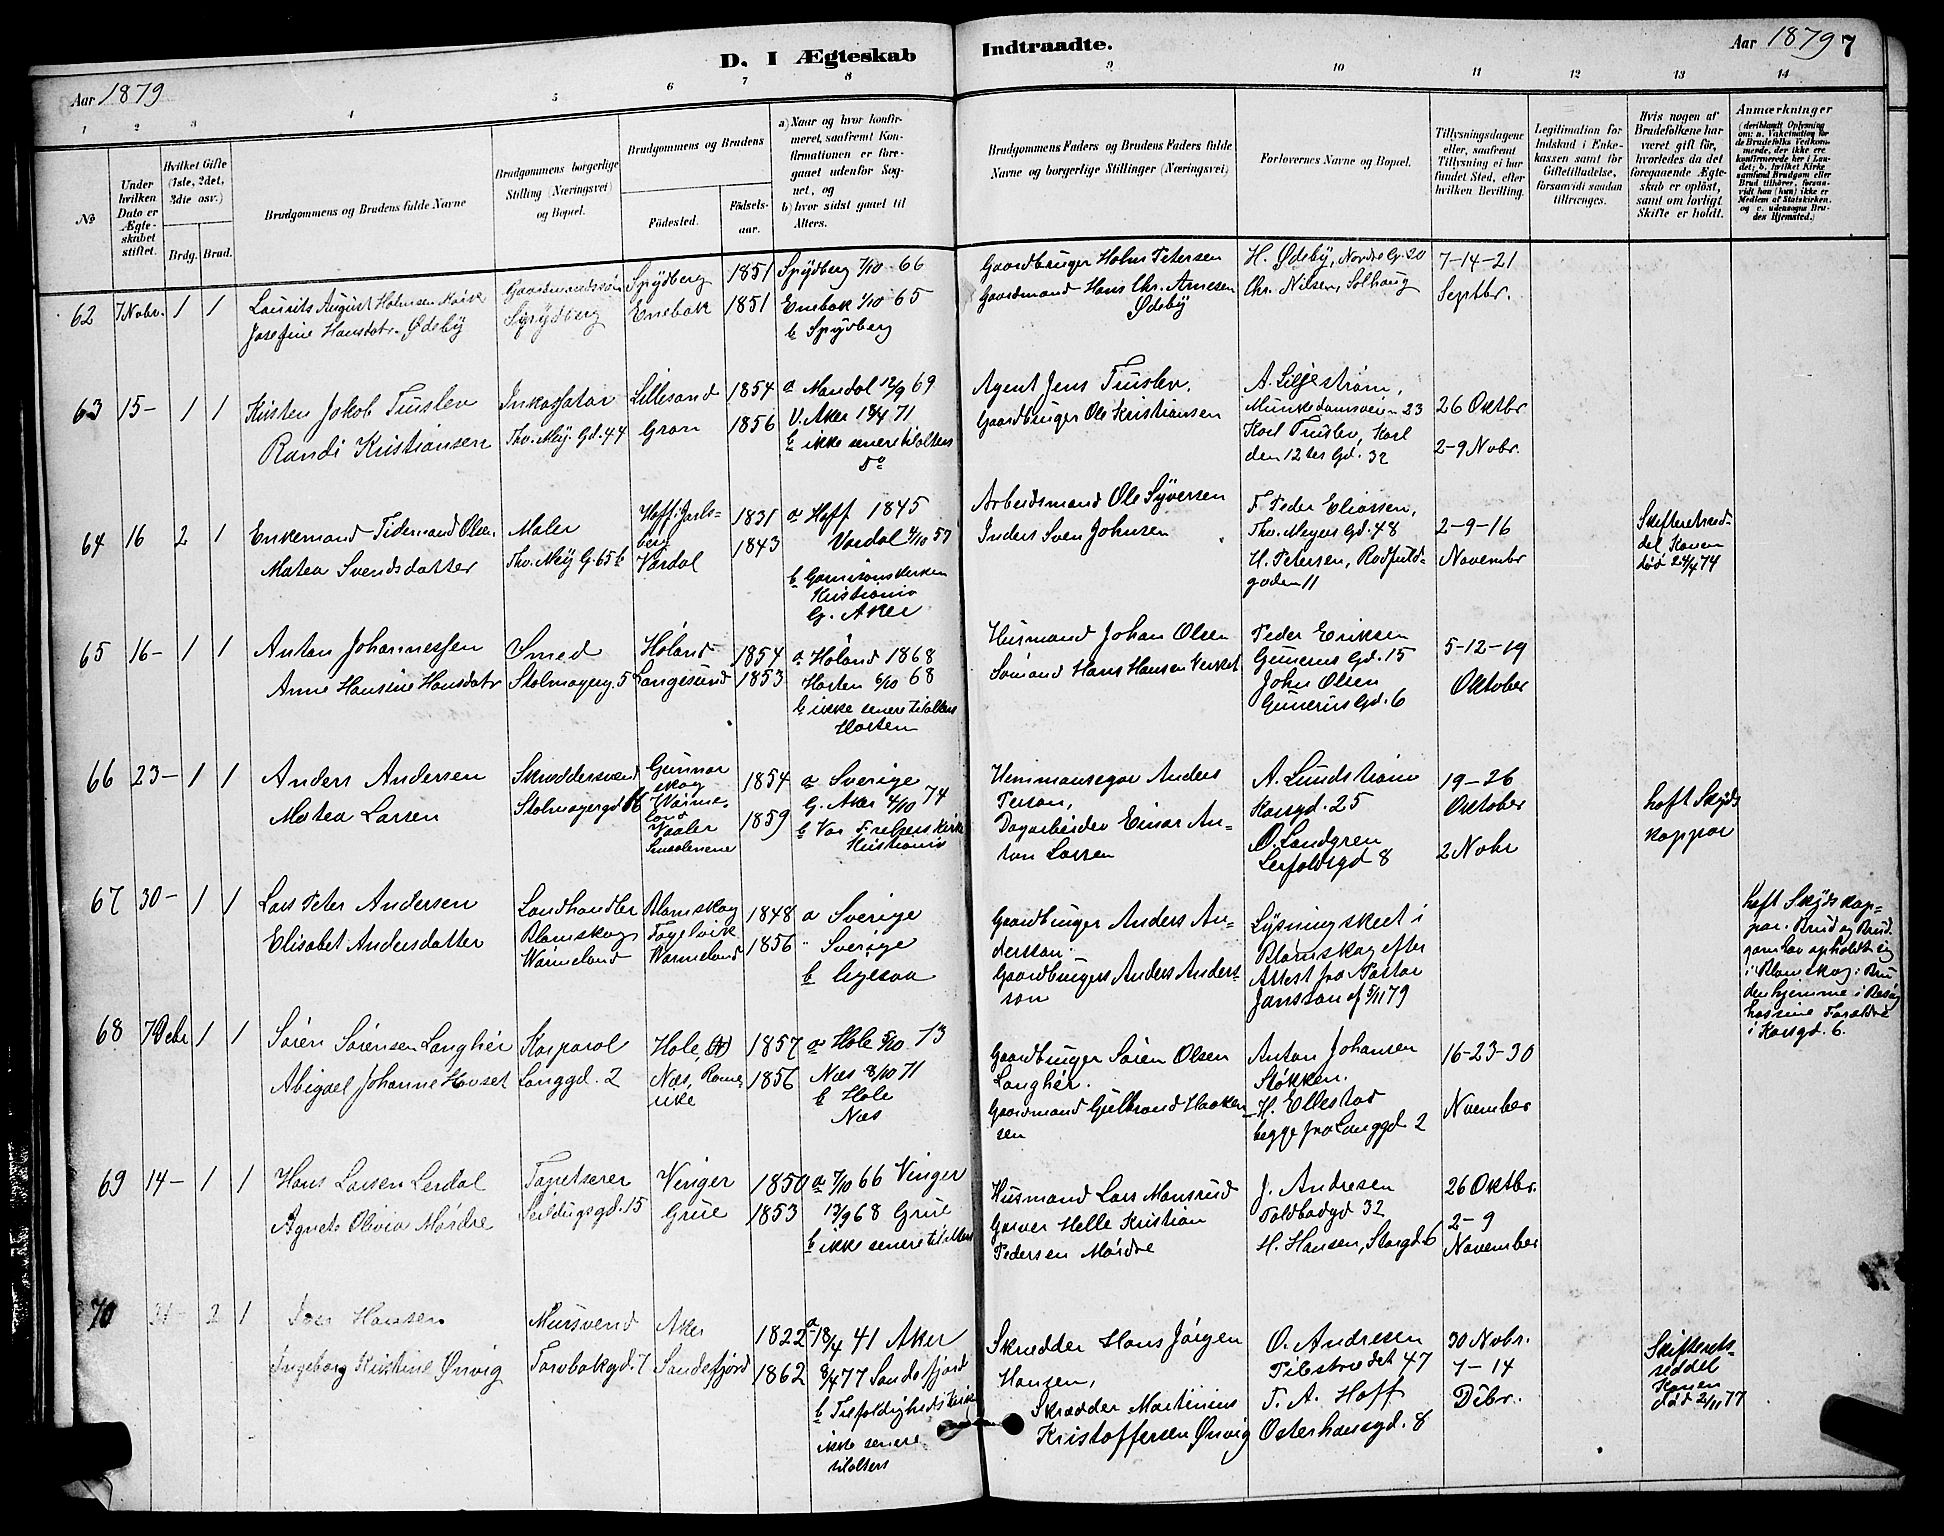 Aar 1879
D. I Ægteskab Indtraadte.
Aar 1879 7
1 2 3 4 5 6 7 8 9 10 11 12 13 14
No
Under hvilken Dato er Ægteskabet stiftet.
Hvilket Gifte (1ste, 2det, 3dte osv.)
Brdg. Brud.
Brudgommens og Brudens fulde Navne
Brudgommens borgerlige Stilling (Næringsvei) og Bopæl.
Brudgommens og Brudens
Fødested.
Fødselsaar.
a) Naar og hvor konfirmeret, saafremt Konfirmationen er foregaaet udenfor Sognet, og
b) hvor sidst gaaet til Alters.
Brudgommens Faders og Brudens Faders fulde Navne og borgerlige Stillinger (Næringsvei)
Forlovernes Navne og Bopæl.
Tillysningsdagene eller, saafremt Tillysning ei har fundet Sted, efter hvilken Bevilling.
Legitimation for Indskud i Enkekassen samt for Giftetilladelse, forsaavidt saadan tiltrænges.
Hvis nogen af Brudefolkene har været gift før, hvorledes da det foregaaende Ægteskab er opløst, samt om lovligt Skifte er holdt.
Anmærkninger
(deriblandt Oplysning om: a. Vakcination for de Brudefolks Vedkommende, der ikke ere konfirmerede her i Landet; b. hvilket Kirkesamfund Brudgom eller Brud tilhører, forsaavidt han (hun) ikke er Medlem af Statskirken, og c. udensogns Brudes Hjemsted.)
62 7 Nobr. 1 1
Laurits August Holmsen
Josefine Hansdatr. Ødeby
Gaardmandssøn
Spydberg
Spydberg 1851
Enebak 1851
Spydberg 7/10 66
Enebak 1/10 65
b Spydberg
Gaardbruger Holm Petersen
Gaardmand Hans Chr. Arnesen
Ødeby
H. Ødeby, Nordre G. 20
Chr. Nilsen, Solhaug
7-14-21
Septbr.
63 15- 1 1
Kristen Jakob Tuslev
Randi Kristiansen
Inkassator
Thv. Mey. Gd. 44
Lillesand 1854
Gran 1856
a Mandal 12/9 69
V. Aker 18/4 71
b ikke senere tilalters
do
Agent Jens Tuslev.
Gaardbruger Ole Kristiansen
A. Liljestrøm,
Munkedamsveien 23
Karl Tuslev, Karl
den 12tes Gd. 32
26 Oktbr.
2-9 Nobr.
64 16 2 1
Enkemand Tidemand Olsen
Matea Svendsdatter
Maler
Thv. Mey G. 65 b
Hoff. Jarls-
berg 1831
Vardal 1843
a Hoff 1845
Vardal 4/10 57
b Garnisonskirken
Kristiania
G. Aker
Arbeidsmand Ole Syversen
Inderst Sven Johnsen
F. Peder Eliassen,
Thv. Meyers Gd. 48
H. Petersen, Rodfuld-
gaden 11
2-9-16
Novembr
Skifteretssed-
del Konen
død 24/4 74
65 16- 1 1
Anton Johannessen
Anne Hansine Hansdatr
Smed
Stolmagerg. 5
Høland 1854
Langesund 1853
a Høland 1868
Horten 6/10 68
b ikke senere tilalters
Horten
Husmand Johan Olsen
Sømand Hans Hansen
Peder Eriksen
Gunerus Gd. 15
John Olsen
Gunerius Gd. 6
5-12-19
Oktober
66 23- 1 1
Anders Andersen
Matea Larsen
Skræddersvend
Stolmagergd. 16
Gunnar
skog
Værme-
land
Vaaler
Smaalenene
1854
1859
a Sverige
G. Aker 4/10 74
b Vor Frelsers Kirke
Kristiania
Hemmansegar Anders
Person,
Dagarbeider Einar An-
ton Larsen
A. Lundstrøm
Korsgd. 25
O. Landgren
Leirfaldsgd 8
19-26
Oktober
2 Nobr
haft Skyds
kopper
67 30- 1 1
Lars Peter Andersen
Elisabet Andersdatter
Landhandler
Blomskog
Wärmeland
Blomskog 1848
Fogelvik 1856
Wärmeland
a Sverige
" Sverige
b ligesaa
Gaardbruger Anders An-
derson
Gaardbruger Anders Anders-
son
Lysning skeet i
Blomskog efter
Attest fra Pastor
Jansson af 5/11 79
haft Skyds kop-
per. Brud og Brud
gom har opholdt sig
i Blomskog: Bru
den hjemme i Besøg
hos sine Forældre
i Korsgd. 6.
68 7 Debr 1 1
Søren Sørensen Longhér
Abigael Johanne Hovset
Korporal
Langgd. 2
Hole 1857
Næs, Rome
rike 1856
a Hole 5/10 73
Næs 8/10 71
b Hole
Næs
Gaardbruger Søren Olsen
Longhér.
Gaardmand Gulbrand Haaken
sen
Anton Johansen
Støkken.
H. Ellestad
begge fra Langgd 2
16-23-30
November
69 14- 1 1
Hans Larsen Lerdal
Agnete Olivia Mørdre
Tapetserer
Seildugsgd. 15
Vinger 1850
Grue 1853
a 7/10 66 Vinger
13/9 68 Grue
b ikke senere til Alters
Husmand Lars Monsrud
Garver Helle Kristian
Pedersen Mørdre
J. Andresen
Toldbodgd 32
H. Hansen, Storgd. 6
26 Oktbr.
2-9
November
70 31- 2 1
Hansen
Ingeborg Kristine Ørvig
Mursvend
Torvbakgd. 7
Aker 1822
Sandefjord 1862
a 18/4 41 Aker
8/4 77 Sandefjord
b Trefoldigheds Kirke
ikke senere
tilalters
Skrædder Hans Jørgen
Hansen,
Skrædder Martinius
Kristoffersen Ørvig
O. Andresen
Pilestrædet 47
T. A. Hoff
Osterhausgd. 8
30 Nobr.
7-14
Dcbr.
Skifterets-
seddel
Konen
død 2/11 77